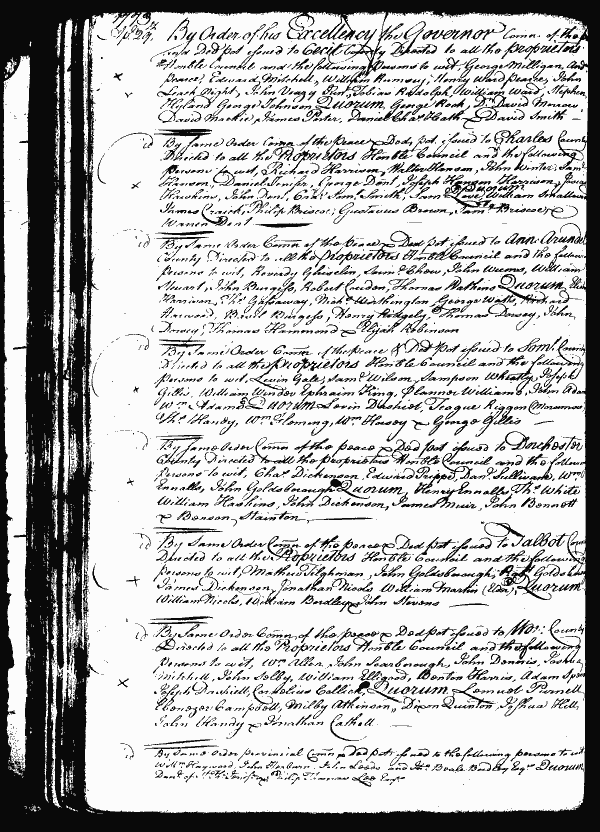 1773
By Order of his Excellency the Governor Comn. of the
Ded. pot issued to Cecil County Directed to all the proprietors
Honble Council and the following Persons to wit, George Milligan, And
Pearce, Edward Mitchell, William Ramsey, Henry Ward Pearce, John
Veazy Junr, Tobias Rudolph, William Ward, Stephen
Hyland George Johnson Quorum, George Rock, Dr. David Morrow
David Mackie, James Porter, Daniel Chas Heath & David Smith
By same Order Comn of the Peace & Ded. pot. issued to Charles County
Directed to all the Proprietors Honble Council and the following
persons to wit, Richard Harrison, Walter Hanson, John Winter, Saml
Hanson, Daniel Jenifer, George Dent, Joseph Hanson Harrison,
Quorum
Hawkins, John Dent, Smith, Saml Love, William Smallwood
James Craick, Philip Briscoe, Gustavus Brown, Saml Briscoe, &
Warren Dent
By Same Order Comn of the peace & Ded pot issued to Ann Arundel
County, Directed to all the proprietors Honble Council and the follow
persons to wit, Reverdy Ghiselin, Saml Chew, John Weems, William
Stuart, John Burgess, Robert Couden, Thomas Rutland Quorum,
Harrison, Thos Gassaway, Nichs Worthington, George Watts, Richard
Harwood, Basil Burgess, Henry Ridgely, Thomas Dorsey, John
Dorsey, Thomas Hammond & Elijah Robinson
By Same Order Comn of the peace & Ded pot issued to Somt. County
Directed to all the proprietors Honble Council and the following
persons to wit, Levin Gale, Saml Wilson, Sampson Wheatly, Joseph
Gillis, William Winder Ephraim King, Planner Williams, John Adams
Wm Adams Quorum Levin Dashiel, Teague Riggin
Thos Handy, Wm Fleming, Wm Hussey & George Gillis
By Same Order Comn of the peace & Ded pot issued to Dorchester
County Directed to all the Proprietors Honble Council and the following
Persons to wit, Chas Dickenson Edward Trippe, Danl Sullivane, Wm
Ennalls, John Goldsborough Quorum, Henry Ennalls Thos White
William Haskins, John Dickenson, James Muir, John Bennett
& Benson Stainton
By Same Order Comn of the peace & Ded pot issued to Talbot County
Directed to all the Proprietors Honble Council and the following
Persons to wit, Mathew Tilghman, John Goldsborough,
James Dickenson, Jonathan Nicols William Martin Quorum
William Nicols, William Bordley & John Stevens
By Same Order Comn. of the peace & Ded pot issued to Wor: County
Directed to all the Proprietors Honble Council and the following
persons to wit, Wm Allen, John Scarborough, John Dennis, Joshua
Mitchell, John Selby, William Ellegood, Benton Harris, Adam
Joseph Dashiell, Quorum Lemuel Purnell
Ebenezer Campbell, Milby Atkinson, Dixon Quinton, Joshua Hill,
John Handy & Jonathan Cathell
By Same Order provincial Comn & Ded pot issued to the following persons to wit
Willm Hayward, John Hepburn, John Leeds and Jno Beale Bordley Esqrs Quorum
Danl of St Ths Jenifer & Philip Thomas Lee Esqrs